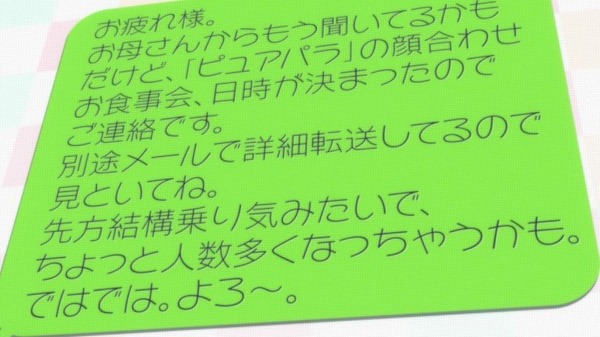 お疲れ様。
お母さんからもう聞いてるかも
だけど、「ピュアパラ」の顔合わせ
お食事会、日時が決まったので
ご連絡です。
別途メールで詳細転送してるので
見といてね。
先方結構乗り気みたいで、
ちょっと人数多くなっちゃうかも。
ではでは。よろ～。